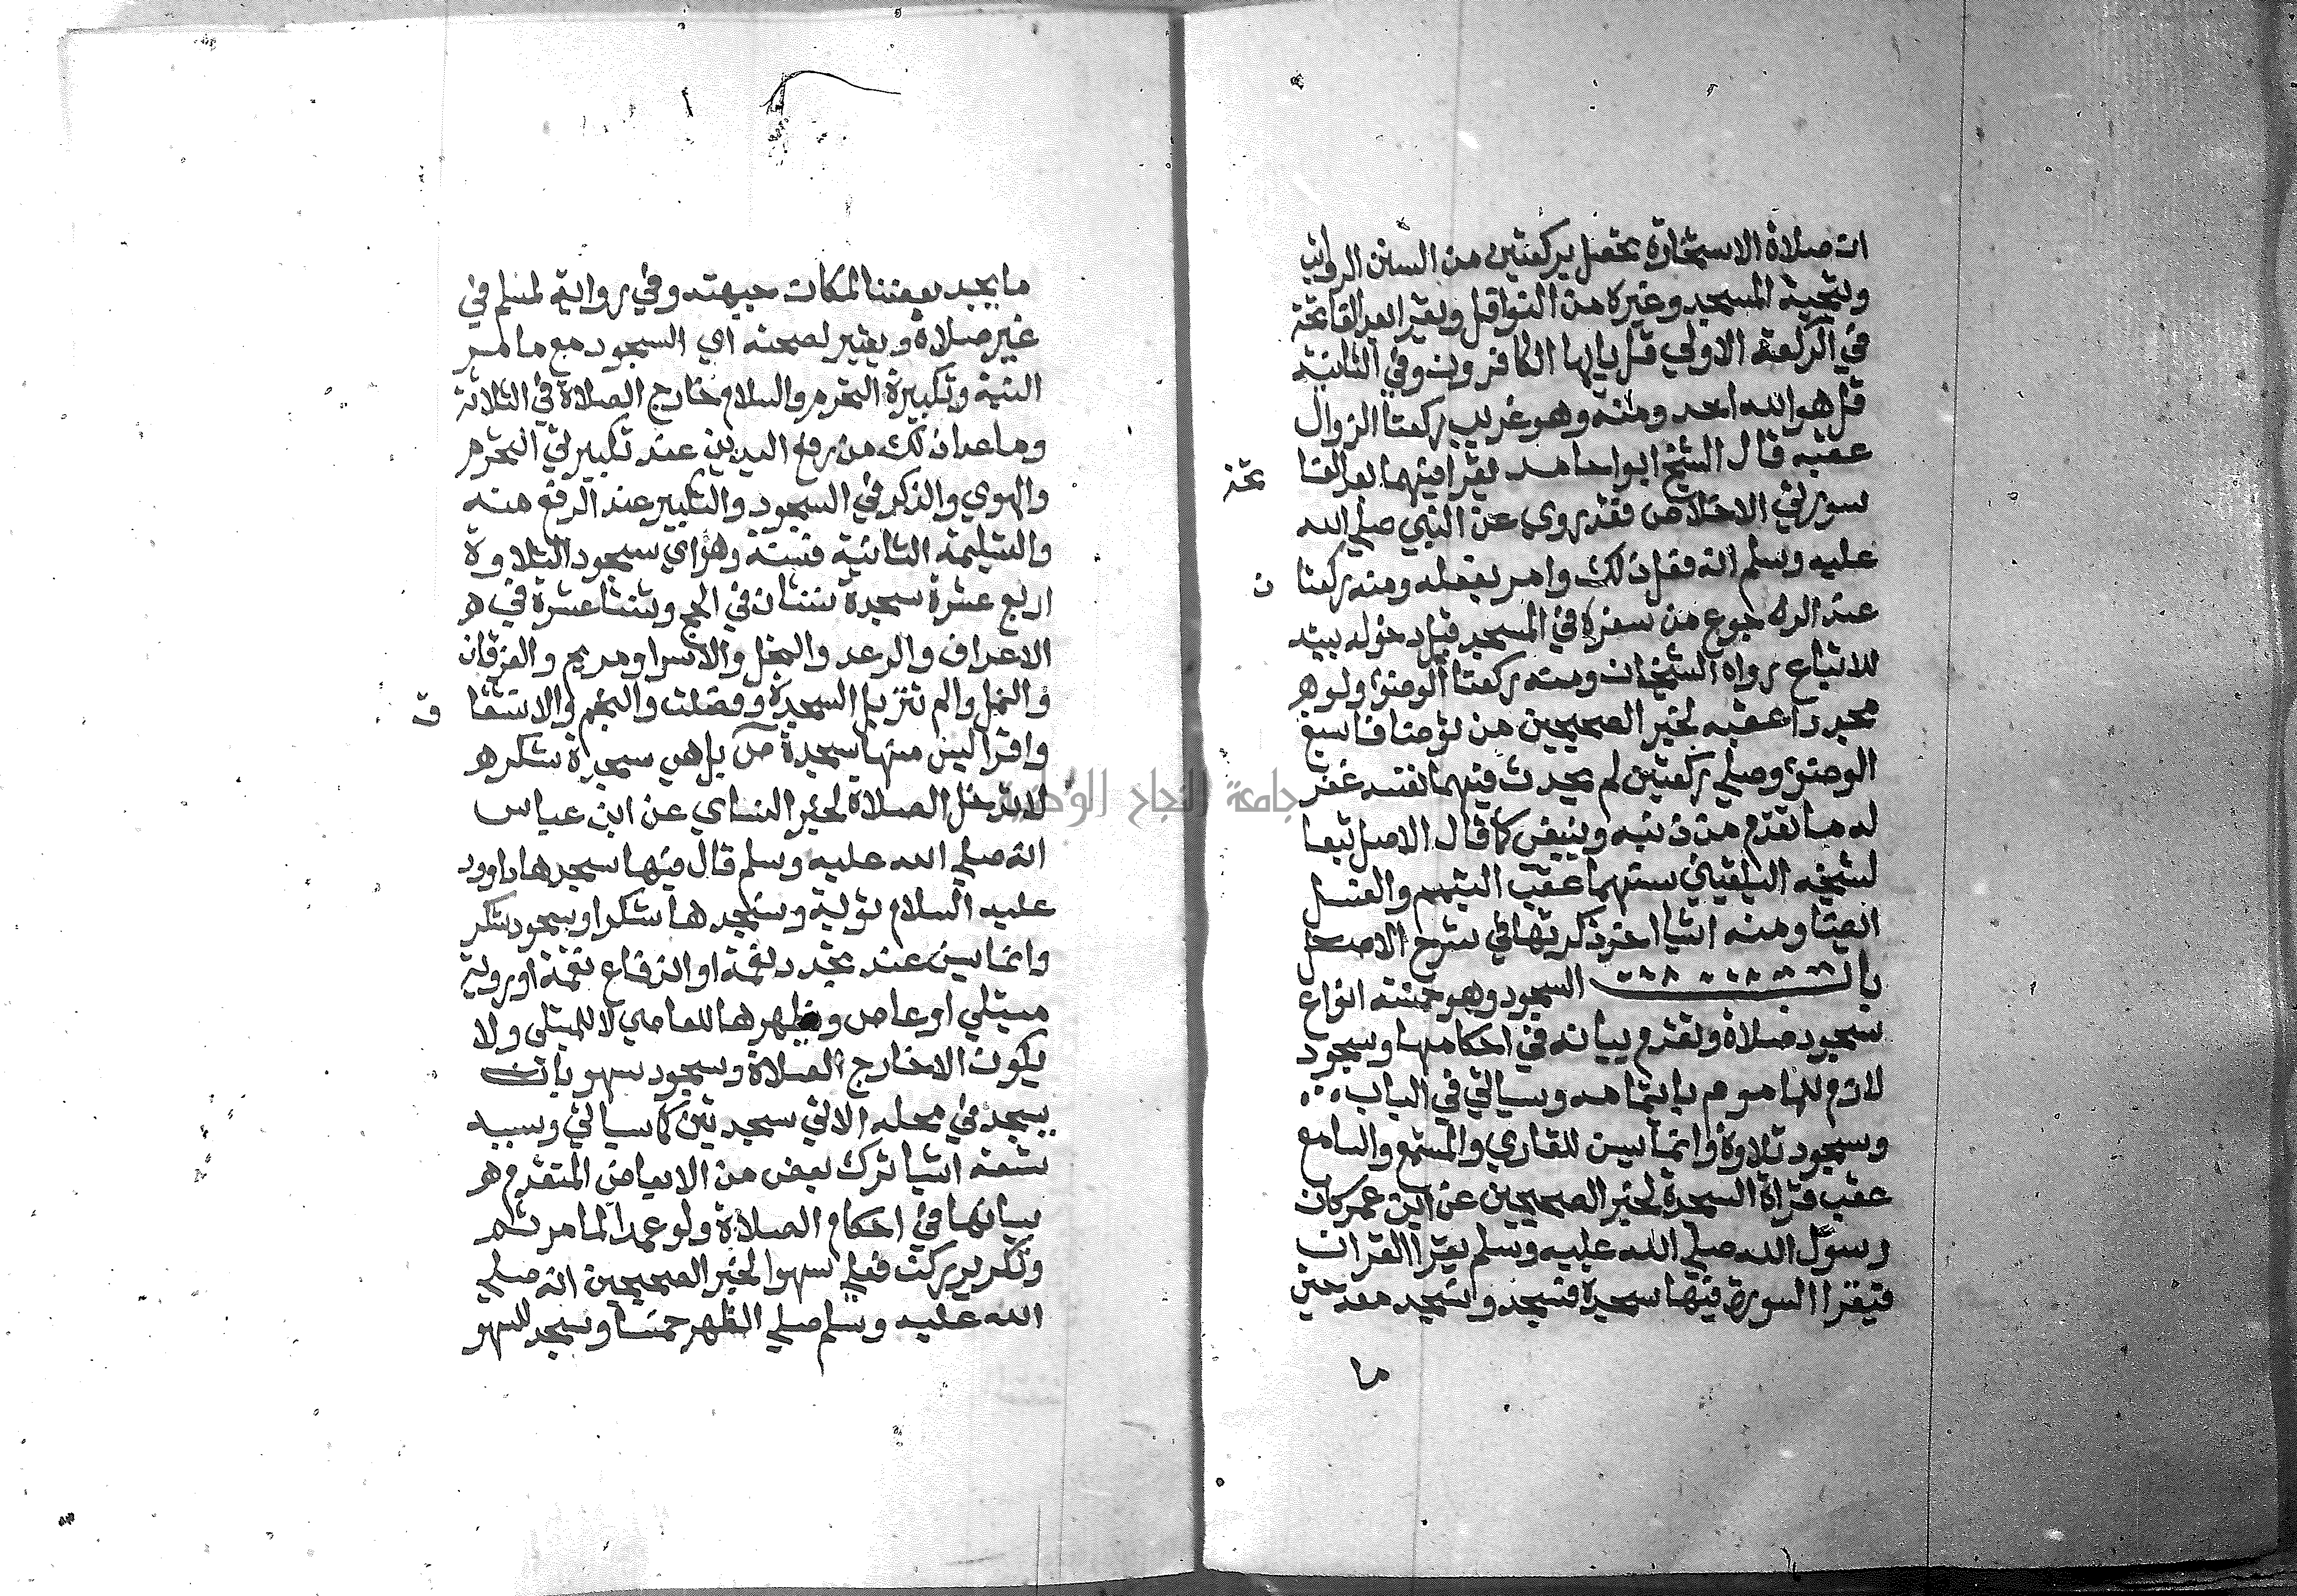 ان صلاة الاستخارة تحصل بركعتين من السنن الرواتب
وبتحية المسجد وغيره من النوافل ويقرا بعد الفاتحة
في الركعة الاولي قل يايها الكافرون وفي الثانية
قل هو الله احد ومنه وهو غريب ركعتا الزوال
عقبه قال الشيخ ابو حامد يقرا فيهما بعد الفا تحة
سورتي الاخلاص فقد روي عن النبي صلي الله
عليه وسلم انه فعل ذلك وامر بفعله ومنه ركعتا ن
عند الرجوع من سفره في المسجد قبل دخوله بيته
للاتباع رواه الشيخان ومنه ركعتا الوضؤ ولو
مجددا عقبه لخبر الصحيحين من توضا فاسبغ
الوضؤ وصلي ركعتين لم يحدث فيهما نفسه غفر
له ما تقدم من ذنبه وينبغي كما قال الاصل تبعا
لشيخه البلقيني سنهما عقب التيمم والغسل
ايضا ومنه اشيا اخر ذكرتها في شرح الاصل
باب السجود وهو خمسة انواع
سجود صلاة وتقدم بيانه في احكامها وسجود
لازم للماموم بايتمامه وسياتي في الباب
وسجود تلاوة وانما يسن للقاري والمستمع والسامع
عقب قراة السجدة لخبر الصحيحين عن ابن عمر كان
رسول الله صلي الله عليه وسلم يقرا القران
فيقرا السورة فيها سجدة فيسجد ونسجد معه حتي
ما
ما يجد بعضنا لمكان جبهته وفي رواية لمسلم في
غير صلاة ويعتبر لصحته اي السجود مع ما مر
النية وتكبيرة التحرم والسلام خارج الصلاة في الثلاثة
وما عدا ذلك من رفع اليدين عند تكبيرتي التحرم
والهوي والذكر في السجود والتكبير عند الرفع منه
والتسليمة الثانية فسنة وهو اي سجود التلاوة
اربع عشرة سجدة ثنتان في الحج وثنتا عشرة في
الاعراف والرعد والنحل والاسرا ومريم والفرقان
والنمل والم تنزيل السجدة وفصلت والنجم والاشقا ق
واقرا ليس منها سجدة ص بل هي سجدة شكر
لا تدخل الصلاة لخبر النساي عن ابن عباس
انه صلي الله عليه وسلم قال فيها سجدها داوود
عليه السلام توبة ونسجدها شكرا وسجود شكر
وانما يسن عند تجدد نعمة او اندفاع نقمة او روية
مبتلي او عاص ويظهرها للعاصي لا للمبتلي ولا
يكون الا خارج الصلاة وسجود سهو بان
يسجد في محله الاتي سجدتين كما سياتي وسببه
تسعة اشيا ترك بعض من الابعاض المتقدم
بيانها في احكام الصلاة ولو عمدا لما مر ثم
وتكرير ركن فعلي سهوا لخبر الصحيحين انه صلي
الله عليه وسلم صلي الظهر خمسا وسجد للسهو
جامعة النجاح الوطنية